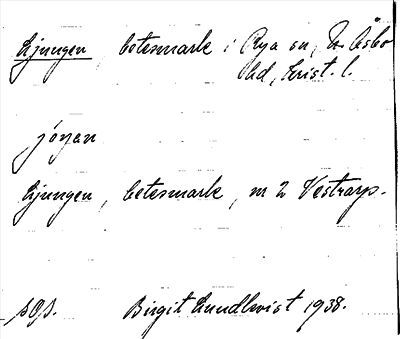 Ljungen, betesmark i Rya sn, N. Åsbo
hd, Krist. l.
jóŋan
Ljungen, betesmark, nr 2 Västraryp.
sOp. Birgit Lundkvist 1938.